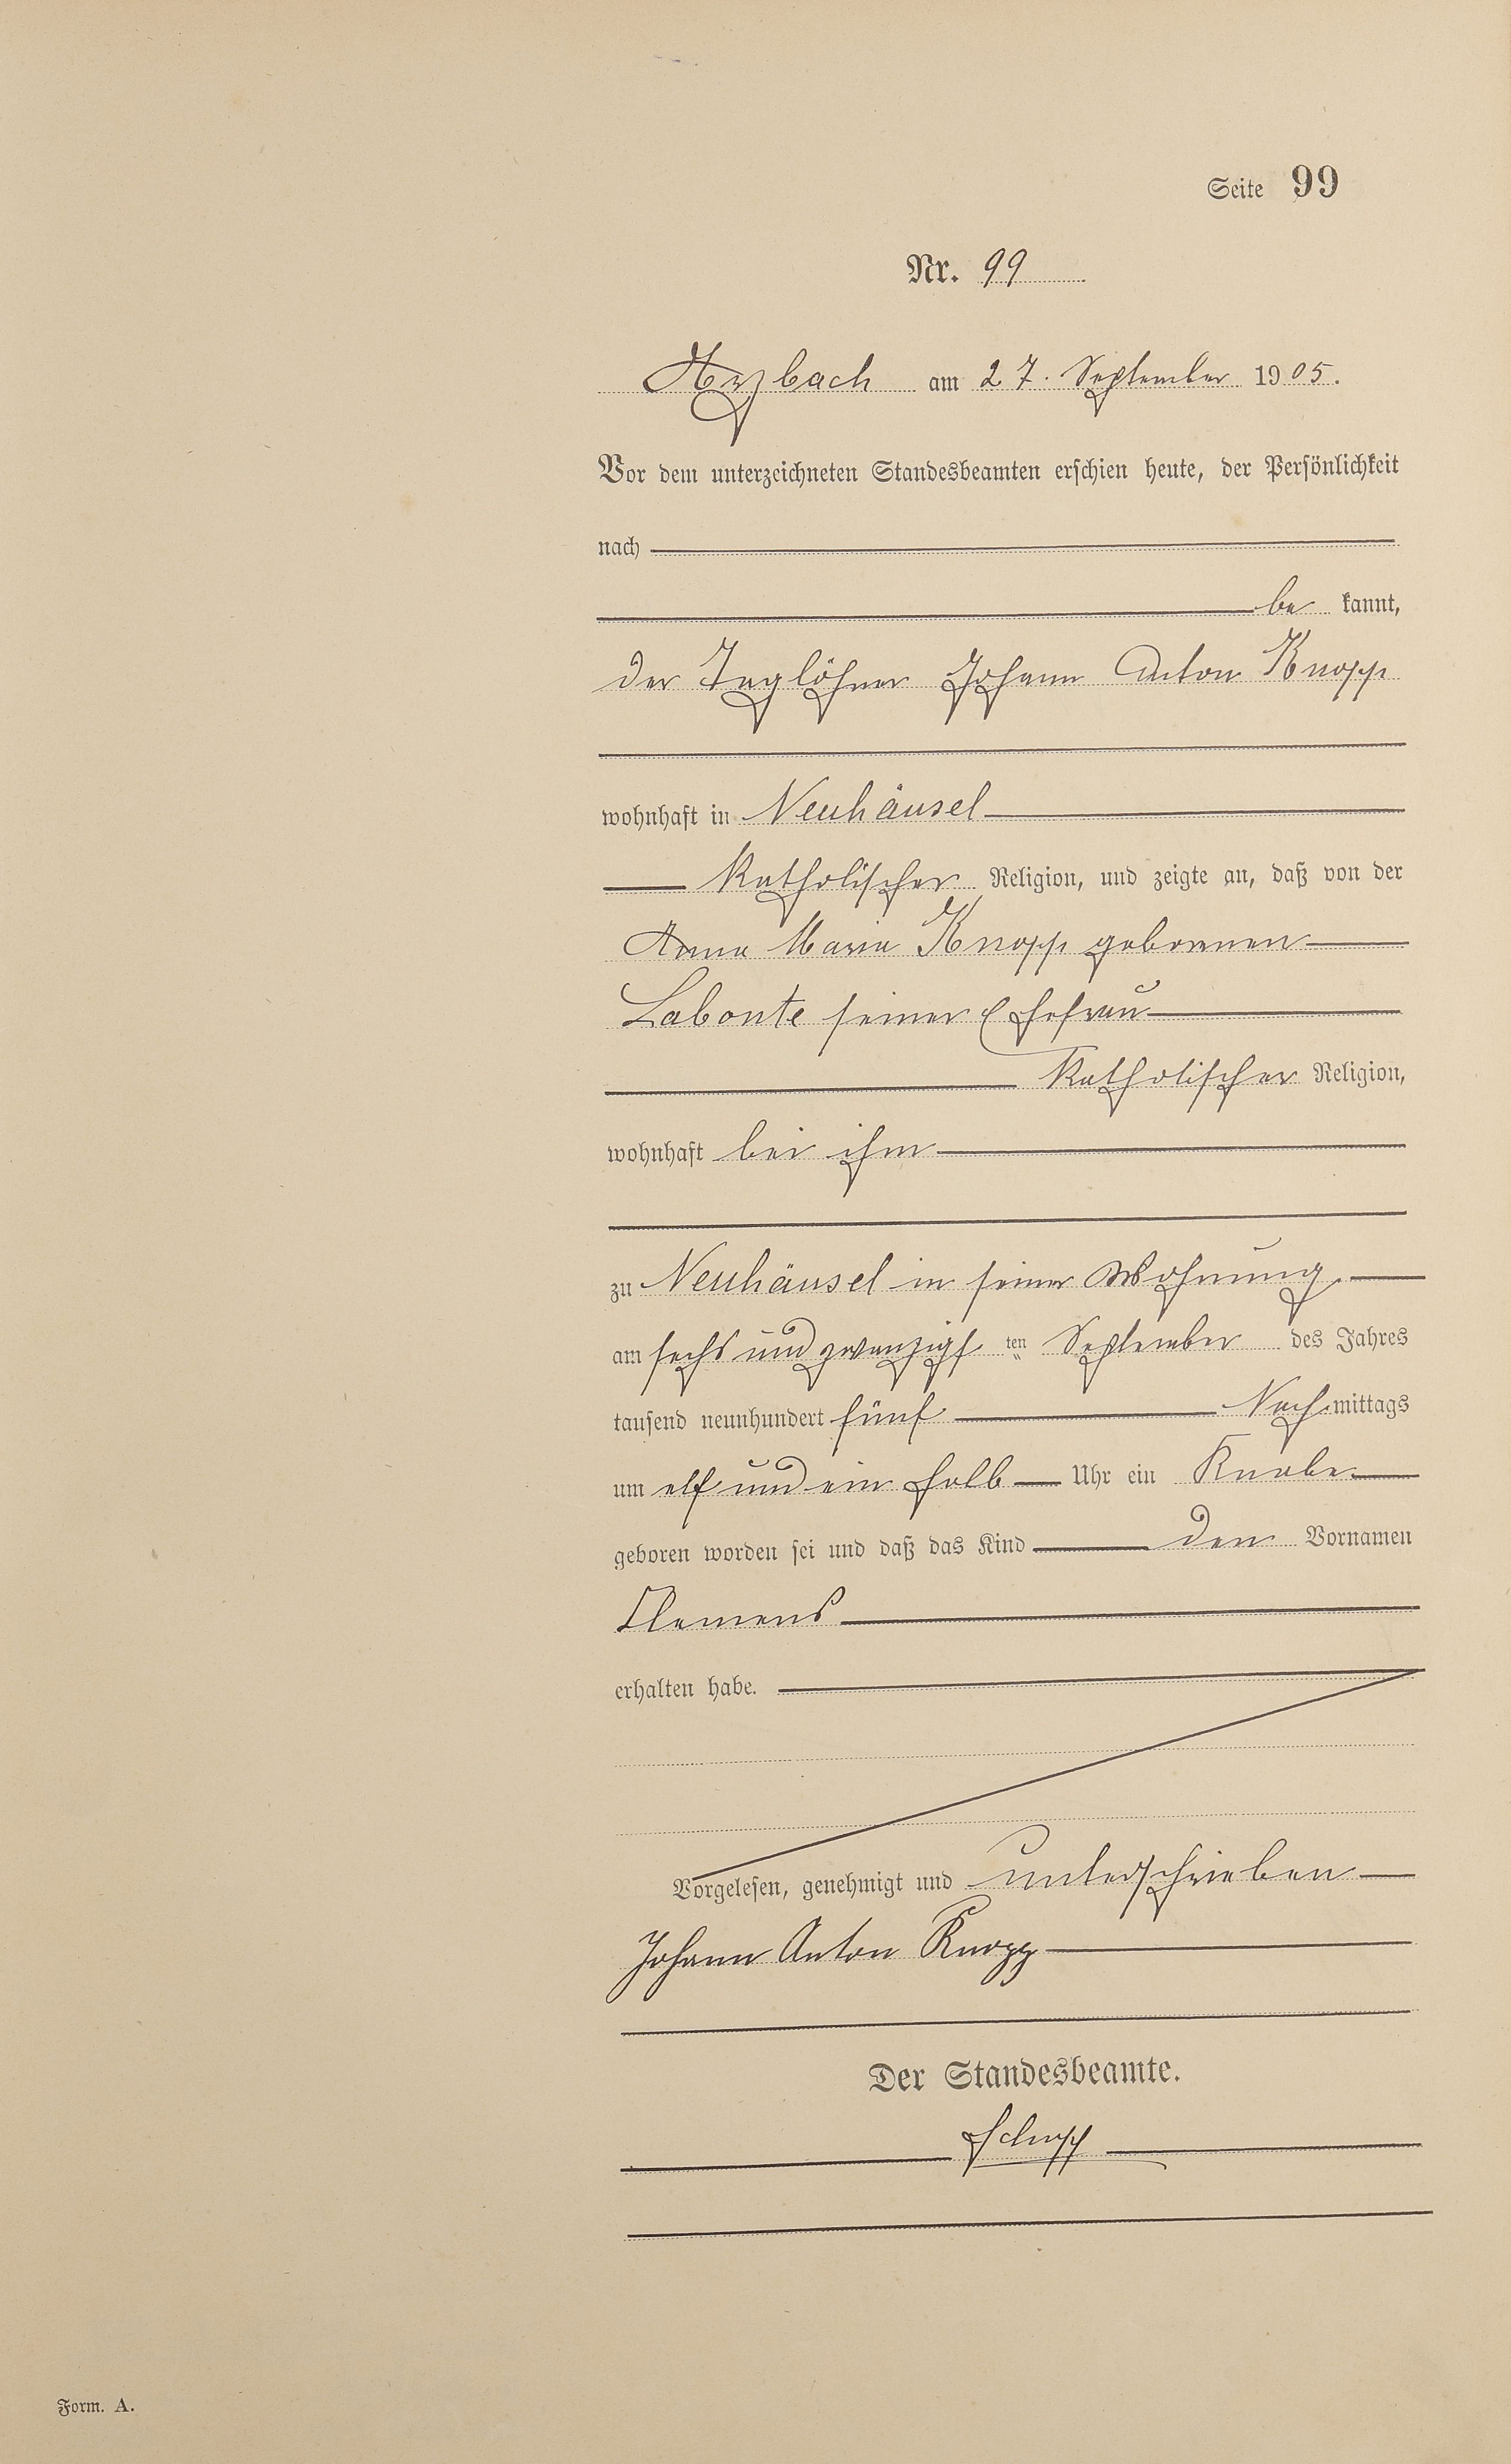 Seite 99
Nr. 99
Arzbach am 27. September 1905.
Vor dem unterzeichneten Standesbeamten erschien heute, der Persönlichkeit
nach
be kannt,
der Taglöhner Johann Anton Knopp
wohnhaft in Neuhäusel
katholischer Religion, und zeigte an, daß von der
Anna Maria Knopp geborenen
Labonte seiner Ehefrau
katholischer Religion,
wohnhaft bei ihm
zu Neuhäusel in seiner Wohnung
am sechs und zwanzigs ten September des Jahres
tausend neunhundert fünf Nach mittags
um elf und ein halb Uhr ein Knabe
geboren worden sei und daß das Kind den Vornamen
Clemens
erhalten habe.
Vorgelesen, genehmigt und unterschrieben
Johann Anton Knopp
Der Standesbeamte.
Schupp
Form. A.